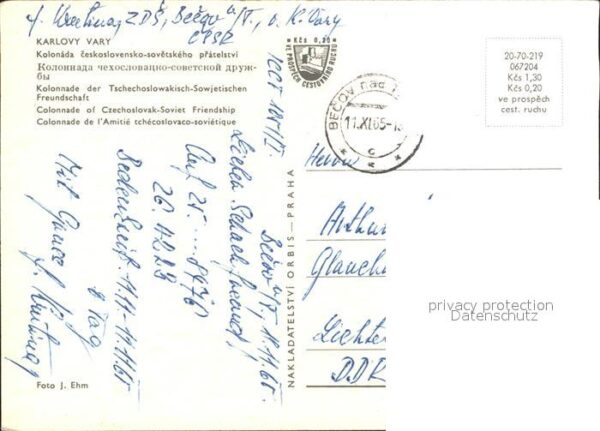 ZDŠ, Bečov n/T., o. K. Vary
ČSSR
KARLOVY VARY
Kolonáda československo-sovětského přátelství
Колоннада чехословацко-советской друж-
бы
Kolonnade der Tschechoslowakisch-Sowjetischen
Freundschaft
Colonnade of Czechoslovak-Soviet Friendship
Colonnade de l'Amitié tchécoslovaco-soviétique
Kčs 0,20
VE PROSPĚCH CESTOVNÍHO RUCHU
BEČOV nad T
11.XI.65-1
20-70-219
067204
Kčs 1,30
Kčs 0,20
ve prospěch
cest. ruchu
Bečov n/T, 11.11.65.
Lieber Schachfreund!
Auf 25.
Bedenkzeit 11.11 - 11.11.65
0 Tag
Mit Gruss
NAKLADATELSTVÍ ORBIS — PRAHA
Herrn
Arthur
Glauch
Lichten
DDR
privacy protection
Datenschutz
Foto J. Ehm